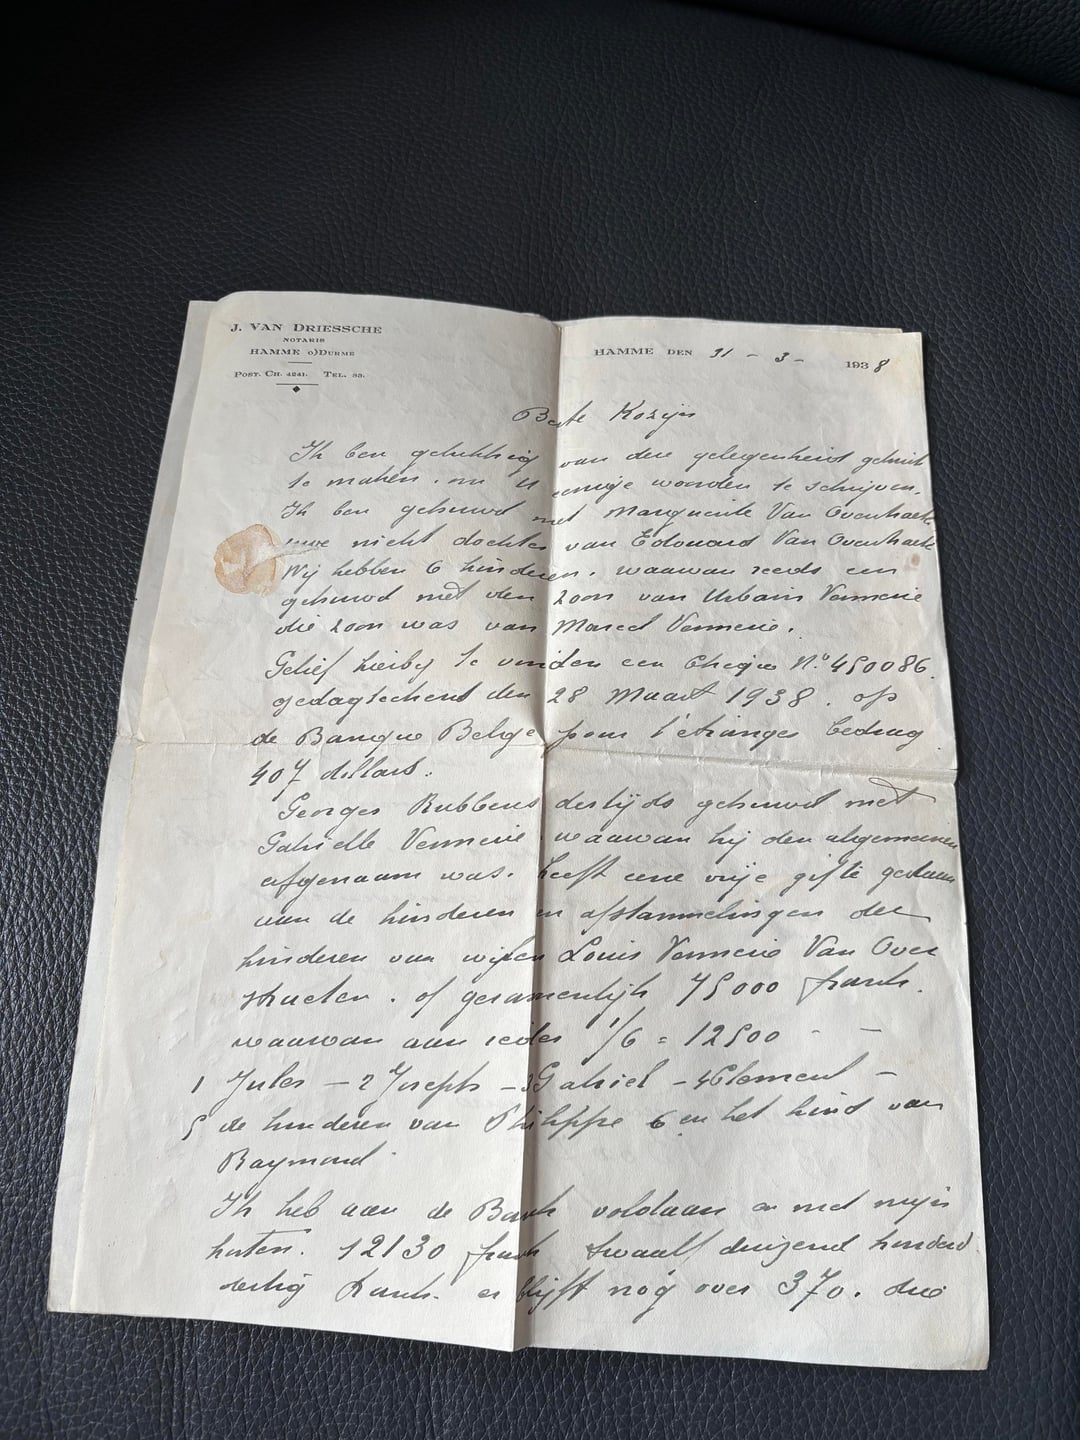 J. VAN DRIESSCHE
NOTARIS
HAMME o/DURME
POST. CH. 4241. TEL. 83.
HAMME DEN 31 - 3 - 1938
Beste Kozijn
Ik ben gelukkig van dere gelegenheid gebruik
te maken. om U eenige woorden te schrijven.
Ik ben gehuwd met Marguerite Van Overstraete
uwe nicht dochter van Edouard Van Overstraete
Wij hebben 6 kinderen. waarvan reeds een
gehuwd met den zoon van Urbain Vermeire
die zoon was van Marcel Vermeire.
Gelief hierbij te vinden een Cheque N.º 450086.
gedagteekend den 28 Maart 1938. op
de Banque Belge pour l'étranger bedrag
407 dollars.
Georges Rubbens destijds gehuwd met
Gabrielle Vermeire waarvan hij den algemeenen
erfgenaam was. heeft eene vrije gifte gedaan
aan de kinderen en afstammelingen der
kinderen van wijlen Louis Vermeire Van Over
straeten. of gezamenlijk 75000 frank.
waarvan aan ieder 1/6 = 12500 - -
1 Jules - 2 Joseph - 3 Gabriel - 4 Clement -
5 de kinderen van Philippe 6 en het kind van
Raymond
Ik heb aan de Bank voldaan en met mijn
kosten. 12130 frank twaalf duizend honderd
dertig frank. er blijft nog over 370. drie